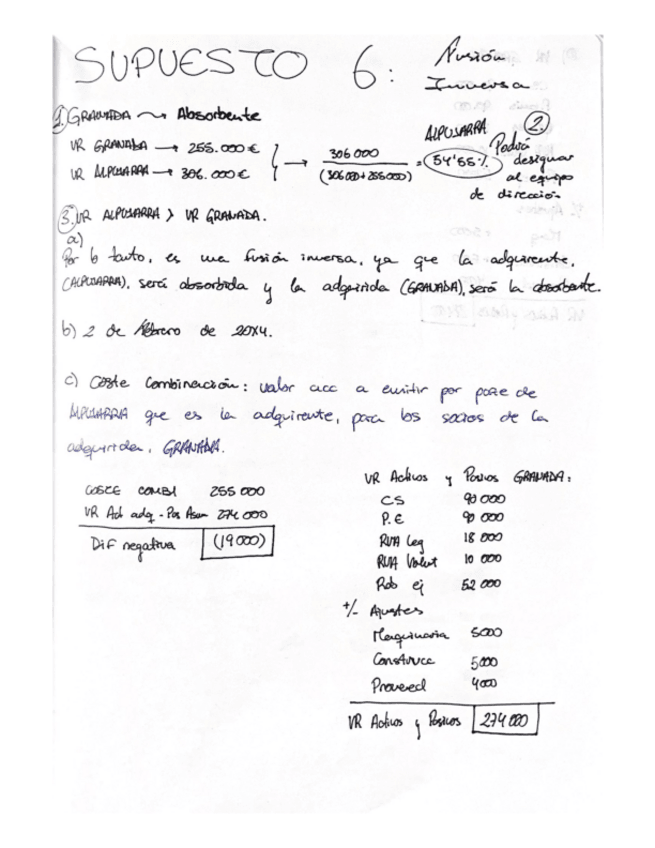 SUPUESTO 6: Fusión Inversa
1. GRANADA → Absorbente
VR GRANADA → 255.000 €
VR ALPUJARRA → 306.000 €
→ 306 000 / (306 000 + 255 000) = 54'55%
ALPUJARRA
2. Podrá designar al equipo de dirección
3. VR ALPUJARRA > VR GRANADA.
a)
Por lo tanto, es una fusión inversa, ya que la adquirente,
(ALPUJARRA), será absorbida y la adquirida (GRANADA), será la absorbente.
b) 2 de febrero de 20X4.
c) Coste Combinación: valor acc a emitir por parte de
ALPUJARRA que es la adquirente, para los socios de la
adquirida, GRANADA.
COSTE COMBI 255 000
VR Act adq - Pas Asum 274 000
Dif negativa (19 000)
VR Activos y Pasivos GRANADA:
CS 90 000
P.E 90 000
RVA Leg 18 000
RVA Volunt 10 000
Rdo ej 52 000
+/- Ajustes
Maquinaria 5000
Construcc 5000
Proveed 4000
VR Activos y Pasivos 274 000